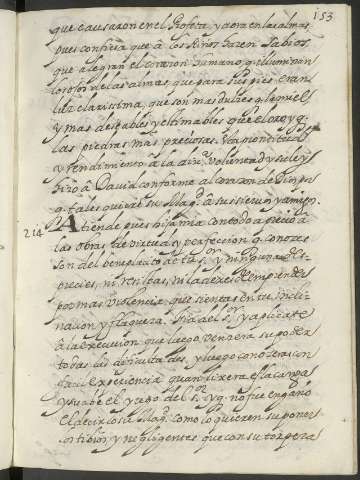 153
que causaron en el Profeta, y aora en las almas
pues confiesa que a los niños hazen sabios,
que alegran el corazon humano, q. iluminan
los ojos de las almas, que para sus pies eran
luz clarissima, que son mas dulces q. la miel
y mas deseables y estimables que el oro, y q.
las piedras mas preciosas. Esta
y rendimiento a la divª voluntad y su ley
hizo a David conforme al corazon de Dios pª
q. tales quiere su Magª a sus siervos y amigos.
214 Atiende pues hija mia con todo aprecio a
las obras de virtud y perfeccion q. conoces
son del beneplacito de tu Sr. y ninguna des-
precies, ni resistas, ni la dexes de emprender
por mas violencia que sientas en tu incli-
nacion y flaqueza. Fia del Sr. y aplicate
a la execucion, que luego vencera su poder
todas las dificultades, y luego conoceras con
feliz experiencia quan ligera es la carga
y suabe el yugo del Sr. y q. no fue engaño
el decirlo su Magª como lo quieren suponer
los tibios, y negligentes que con su torpeza